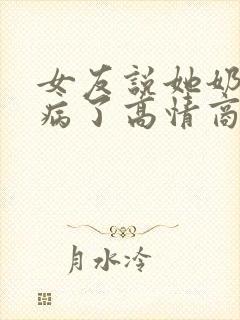 女友說她奶
病了高情商
月水冷